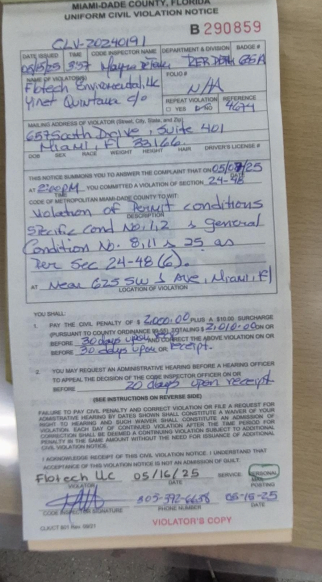 MIAMI-DADE COUNTY, FLORIDA
UNIFORM CIVIL VIOLATION NOTICE
B 290859
CLV-20240191
DATE ISSUED TIME CODE INSPECTOR NAME DEPARTMENT & DIVISION BADGE #
05/15/25 3:57
NAME OF VIOLATOR(S) FOLIO #
Flotech Environmental, LLC N/A
Ynet Quintana c/o
REPEAT VIOLATION REFERENCE
YES NO
MAILING ADDRESS OF VIOLATOR (Street, City, State, and Zip)
657 South Drive, Suite 401
Miami, Fl 33166
DOB SEX RACE WEIGHT HEIGHT HAIR DRIVER'S LICENSE #
THIS NOTICE SUMMONS YOU TO ANSWER THE COMPLAINT THAT ON
AT 2:00PM, YOU COMMITTED A VIOLATION OF SECTION 24-48
CODE OF METROPOLITAN MIAMI-DADE COUNTY TO WIT:
Violation of Permit conditions
DESCRIPTION
Specific Cond No. 1, 2 & General
Condition No. 8, 11 & 25 as
Per Sec 24-48 (6).
AT Near 625 SW 1 Ave, Miami, Fl
LOCATION OF VIOLATION
YOU SHALL:
1. PAY THE CIVIL PENALTY OF $ 2,000.00 PLUS A $10.00 SURCHARGE
(PURSUANT TO COUNTY ORDINANCE TOTALING $ 2,010.00 ON OR
BEFORE 30 days upon AND CORRECT THE ABOVE VIOLATION ON OR
BEFORE 30 days upon receipt.
2. YOU MAY REQUEST AN ADMINISTRATIVE HEARING BEFORE A HEARING OFFICER
TO APPEAL THE DECISION OF THE CODE INSPECTOR OFFICER ON OR
BEFORE 20 days upon receipt
(SEE INSTRUCTIONS ON REVERSE SIDE)
FAILURE TO PAY CIVIL PENALTY AND CORRECT VIOLATION OR FILE A REQUEST FOR
ADMINISTRATIVE HEARING BY DATES SHOWN SHALL CONSTITUTE A WAIVER OF YOUR
RIGHT TO HEARING AND SUCH WAIVER SHALL CONSTITUTE AN ADMISSION OF
VIOLATION. EACH DAY OF CONTINUED VIOLATION AFTER THE TIME PERIOD FOR
CORRECTION SHALL BE DEEMED A CONTINUING VIOLATION SUBJECT TO ADDITIONAL
PENALTY IN THE SAME AMOUNT WITHOUT THE NEED FOR ISSUANCE OF ADDITIONAL
CIVIL VIOLATION NOTICE.
I ACKNOWLEDGE RECEIPT OF THIS CIVIL VIOLATION NOTICE. I UNDERSTAND THAT
ACCEPTANCE OF THIS VIOLATION NOTICE IS NOT AN ADMISSION OF GUILT.
Flotech LLC 05/16/25 SERVICE: PERSONAL
VIOLATOR DATE MAIL
POSTING
SIGNATURE PHONE NUMBER DATE
VIOLATOR'S COPY